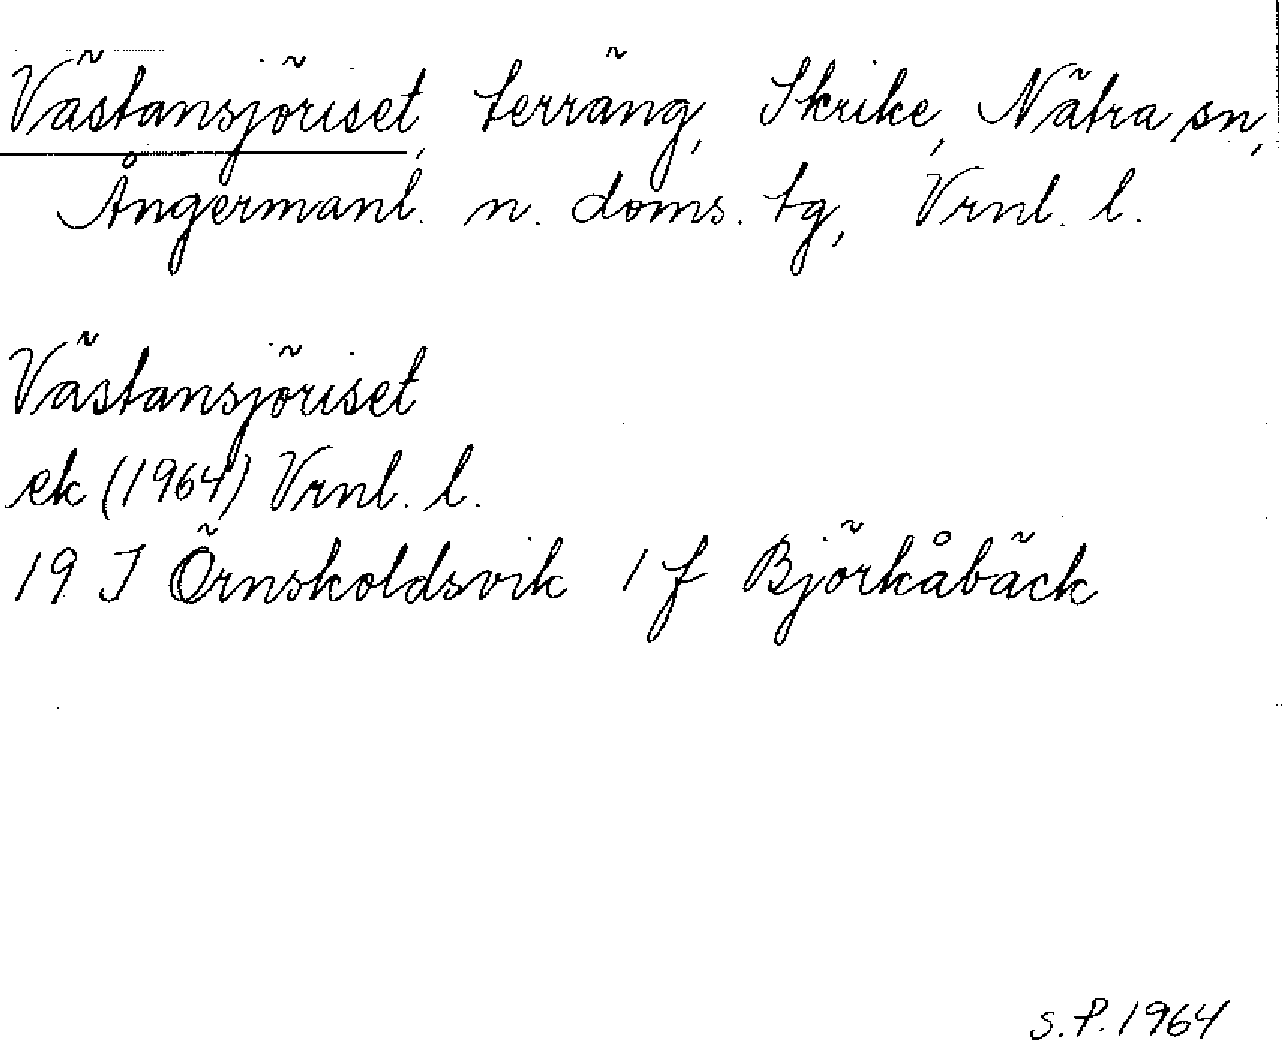 Västansjöriset, terräng, Skrike, Nätra sn,
Ångermanl. n. doms. tg, Vrnl. l.
Västansjöriset
ek (1964) Vrnl. l.
19 I Örnsköldsvik 1 f Björkåbäck
S.P. 1964